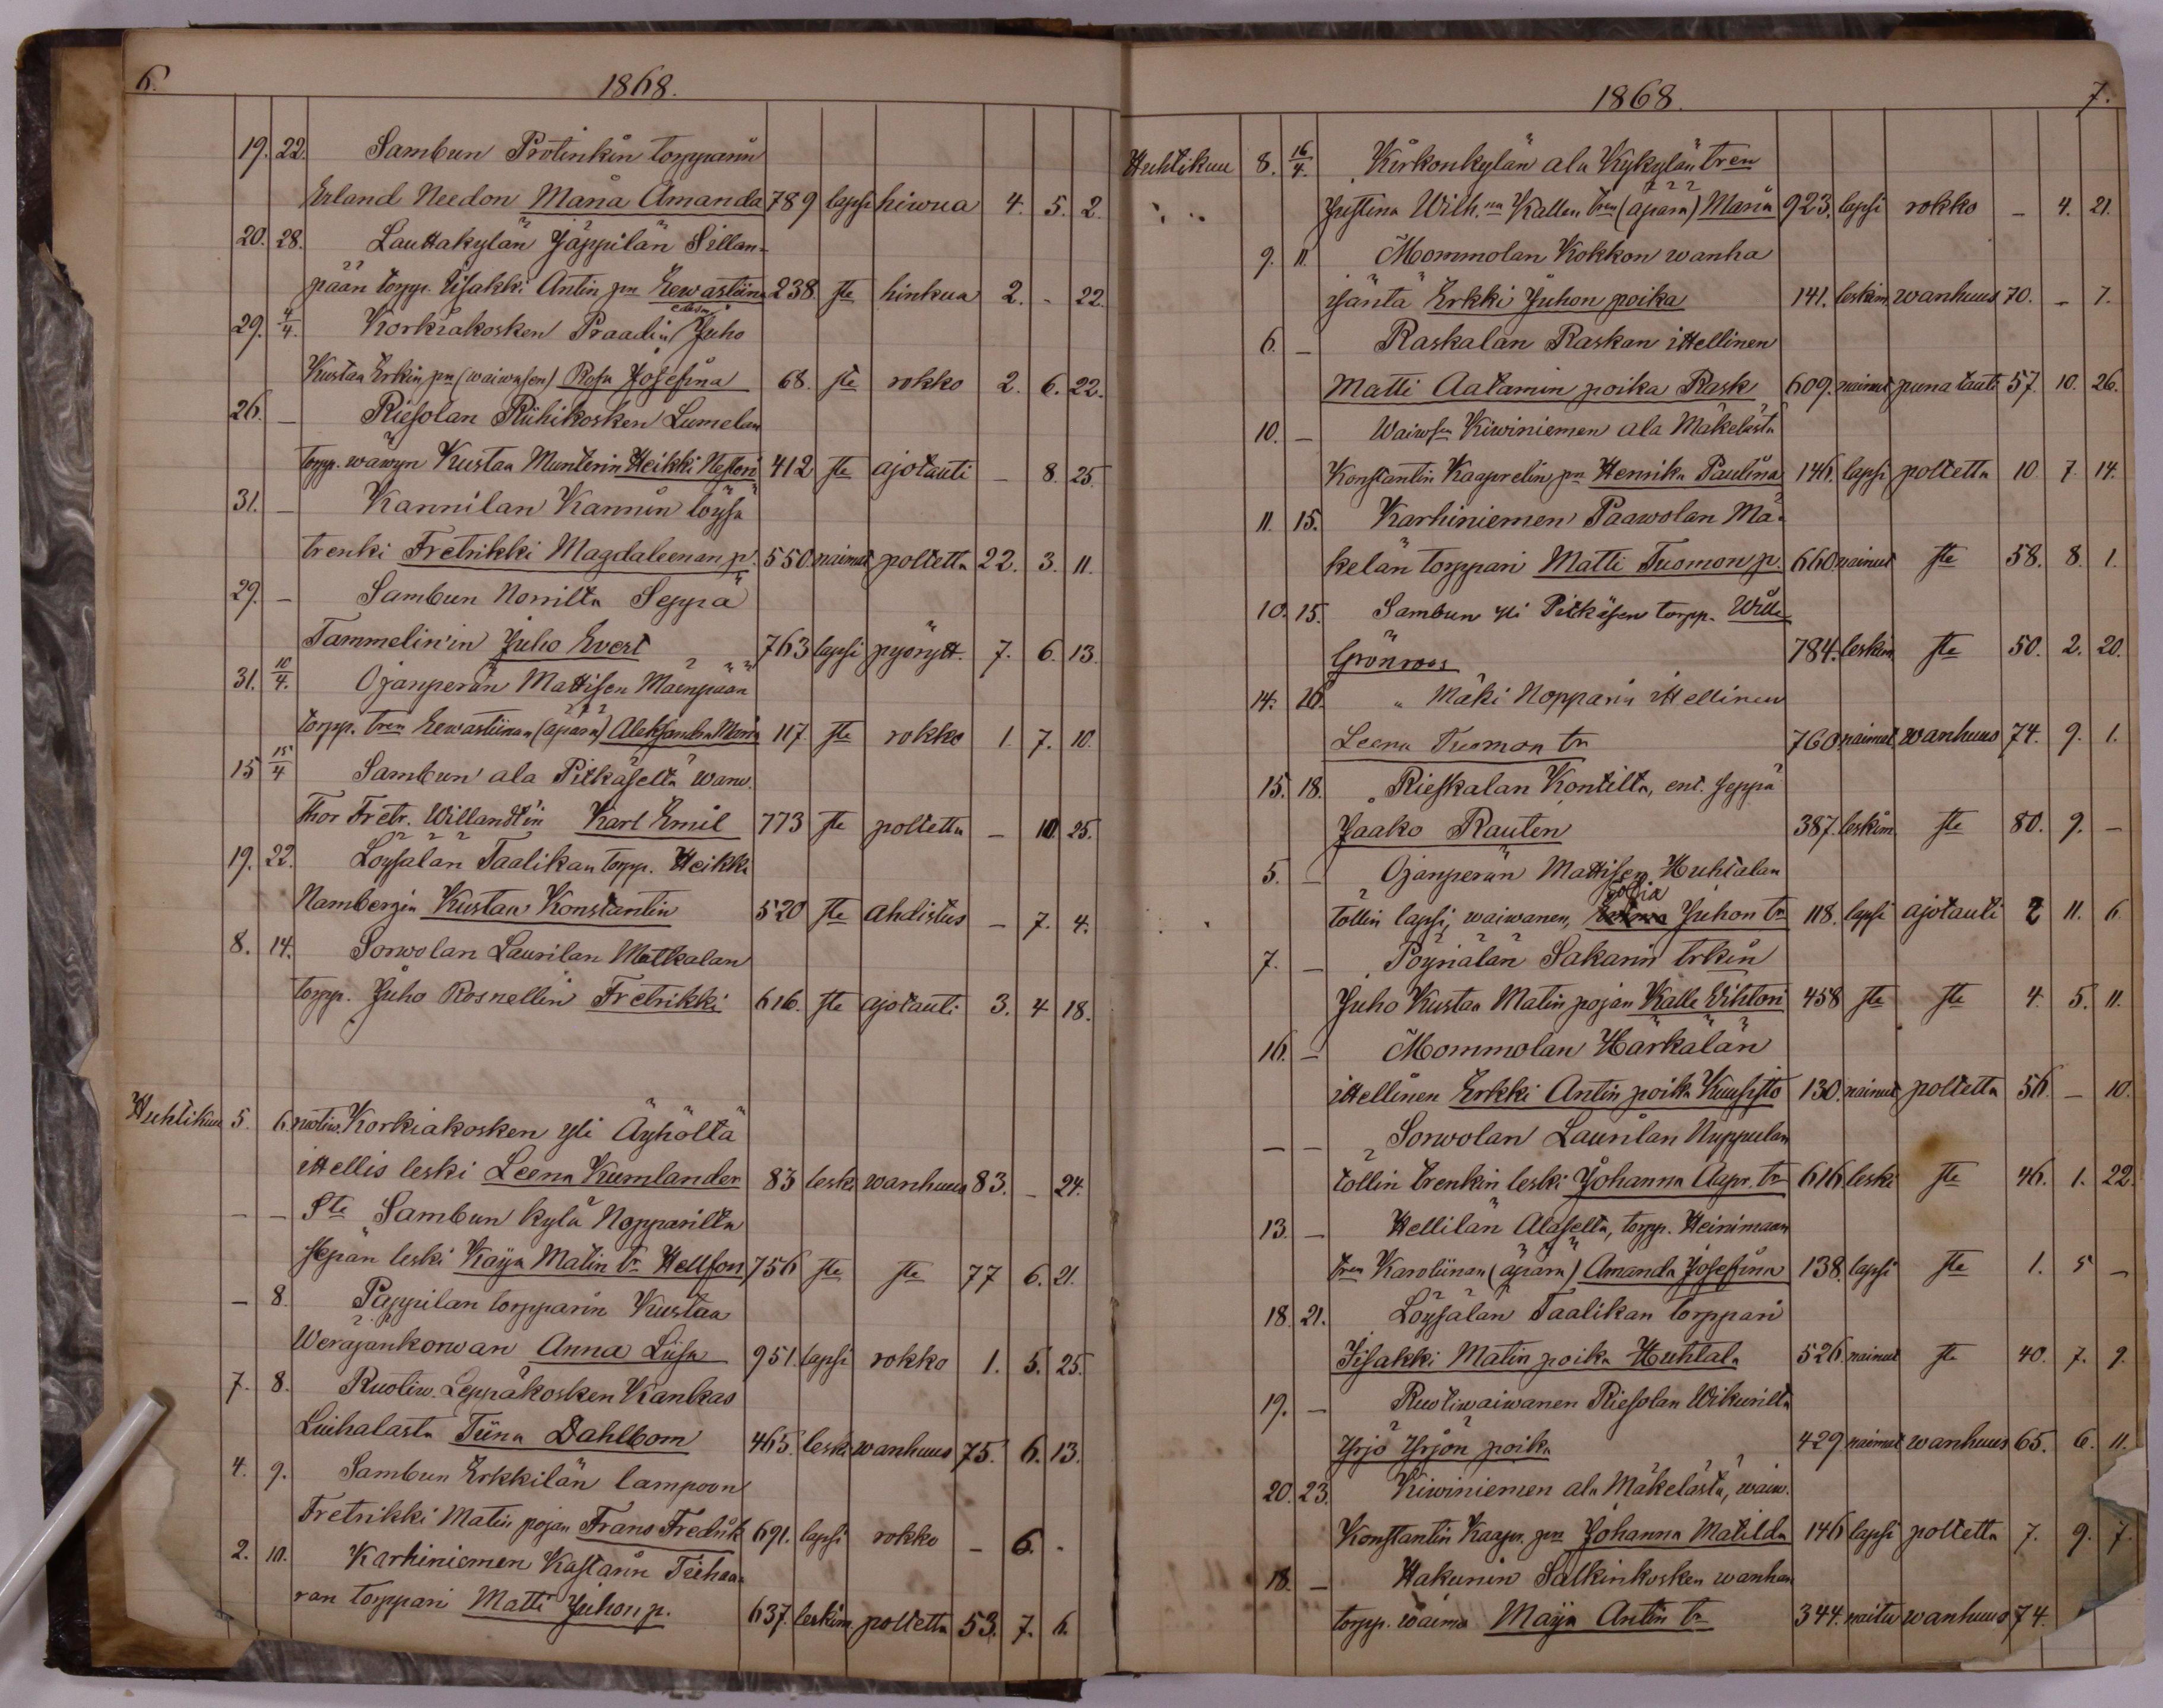 6.
1868.
19. 22. Sambun Protinkin torpparin
Erland Needon Maria Amanda 789 lapsi hiwua 4. 5. 2.
20. 28. Lauttakylän Jäppilän Sillan-
pään torpp. Iisakki Antin pn Eewastiina 238. ste hinkua 2. - 22.
29. 4/4. Korkiakosken Praadin Juho
Kustaa Erkin pn (waiwasen) Rosa Josefina 68. ste rokko 2. 6. 22.
26. — Riesolan Riihikosken Lumelan
torpp. wäwyn Kustaa Munterin Heikki Nestori 412 ste ajotauti — 8. 25.
31. — Kannilan Kannin löysä
trenki Fretrikki Magdaleenan p. 550. naimat poltetta 22. 3. 11.
29. — Sambun Norrilta Seppä
Tammelin'in Juho Evert 763 lapsi pyörytt. 7. 6. 13.
31. 10/4. Ojanperän Mattisen Mäenpään
torpp. tren Eewastiinan (äpärä) Aleksandra Maria 117. ste rokko 1. 7. 10.
15 15/4 Sambun ala Pitkäseltä wanw.
Thor Fretr. Willandt'in Karl Emil 773 ste poltettu — 10. 25.
19. 22. Löysälän Taalikan torpp. Heikki
Nambergin Kustaa Konstantin 520 ste ahdistus — 7. 4.
8. 14. Sorwolan Laurilan Matkalan
torpp. Juho Rosnellin Fretrikki 616. ste ajotauti 3. 4 18.
Huhtikuu 5. 6. ruotiw. Korkiakosken yli Äyhöltä
ittellis leski Leena Kumlander 83 leski wanhuus 83. — 24.
— — Ste Sambun kylä Nopparilta
sepän leski Kaija Matin tr Hellson 756 ste ste 77 6. 21.
— 8. Pappilan torpparin Kustaa
Weräjänkorwan Anna Liisa 951. lapsi rokko 1. 5. 25.
7. 8. Ruotiw. Leppäkosken Kankas
Luihalasta Tiina Dahlbom 465. leski wanhuus 75. 6. 13.
4. 9. Sambun Erkkilän lampoon
Fretrikki Matin pojan Frans Fredrik 691. lapsi rokko — 6. -
2. 10. Karhiniemen Kastarin Tiihaa-
ran torppari Matti Juhon p. 637. leskim. poltetta 53. 7. 6.
1868.
7.
Huhtikuu 8. 16/4. Kirkonkylän ala Kykylän tren
Justina Wilh.na Kallen tren (äpärä) Maria 923. lapsi rokko — 4. 21.
9. 11. Mommolan Kokkon wanha
isäntä Erkki Juhon poika 141. leskim. wanhuus 70. — 7.
6. — Raskalan Raskan ittellinen
Matti Aatamin poika Rask 609. nainut puna tauti 57. 10. 26.
10. — Waiwsn Kiwiniemen ala Mäkelästä
Konstantin Kaaprelin pn Henrika Paulina 146. lapsi poltetta 10 7. 14.
11. 15. Karhiniemen Paawolan Mä-
kelän torppari Matti Tuomon p. 660 nainut ste 58. 8. 1.
10. 15. Sambun yli Pitkäsen torpp. Wille
Grönroos 784. leskim ste 50. 2. 20.
14. 20. „ Mäki Nopparin ittellinen
Leena Tuomon tr 760 naimat. wanhuus 74. 9. 1.
15. 18. Rieskalan Kontilta, ent. seppä
Jaako Rauten 387. leskim ste 80. 9. —
5. — Ojanperän Mattisen Huhtalan
töllin lapsi, waiwanen, Sofia Juhon tr 118. lapsi ajotauti 2 11. 6
7. — Pöyriälän Sakarin trkin
Juho Kustaa Matin pojan Kalle Vihtori 458 ste ste 4. 5. 11.
16. — Mommolan Härkälän
ittellinen Erkki Antin poika Kuusisto 130. nainut poltetta 56. — 10.
— — Sorwolan Laurilan Nuppulan
töllin trenkin leski Johanna Aapr. tr 616 leski ste 46. 1. 22.
13. — Hellilän Alaselta, torpp. Heinimaan
tren Karoliinan (äpärä) Amanda Josefina 138. lapsi ste 1. 5 —
18. 21. Löysälän Taalikan torppari
Iisakki Matin poika Huhtala 526 nainut ste 40. 7. 9.
19. — Ruotiwaiwanen Riesolan Wikurilta
Yrjö Yrjön poika 429 naimat wanhuus 65. 6. 11.
20. 23. Kiwiniemen ala Mäkelästä, waiw.
Konstantin Kaapr. pn Johanna Matilda 146 lapsi poltetta 7. 9. 7.
18. — Hakunin Salkinkosken wanhan
torpp. waimo Maija Antin tr 344. naitu wanhuus 74.